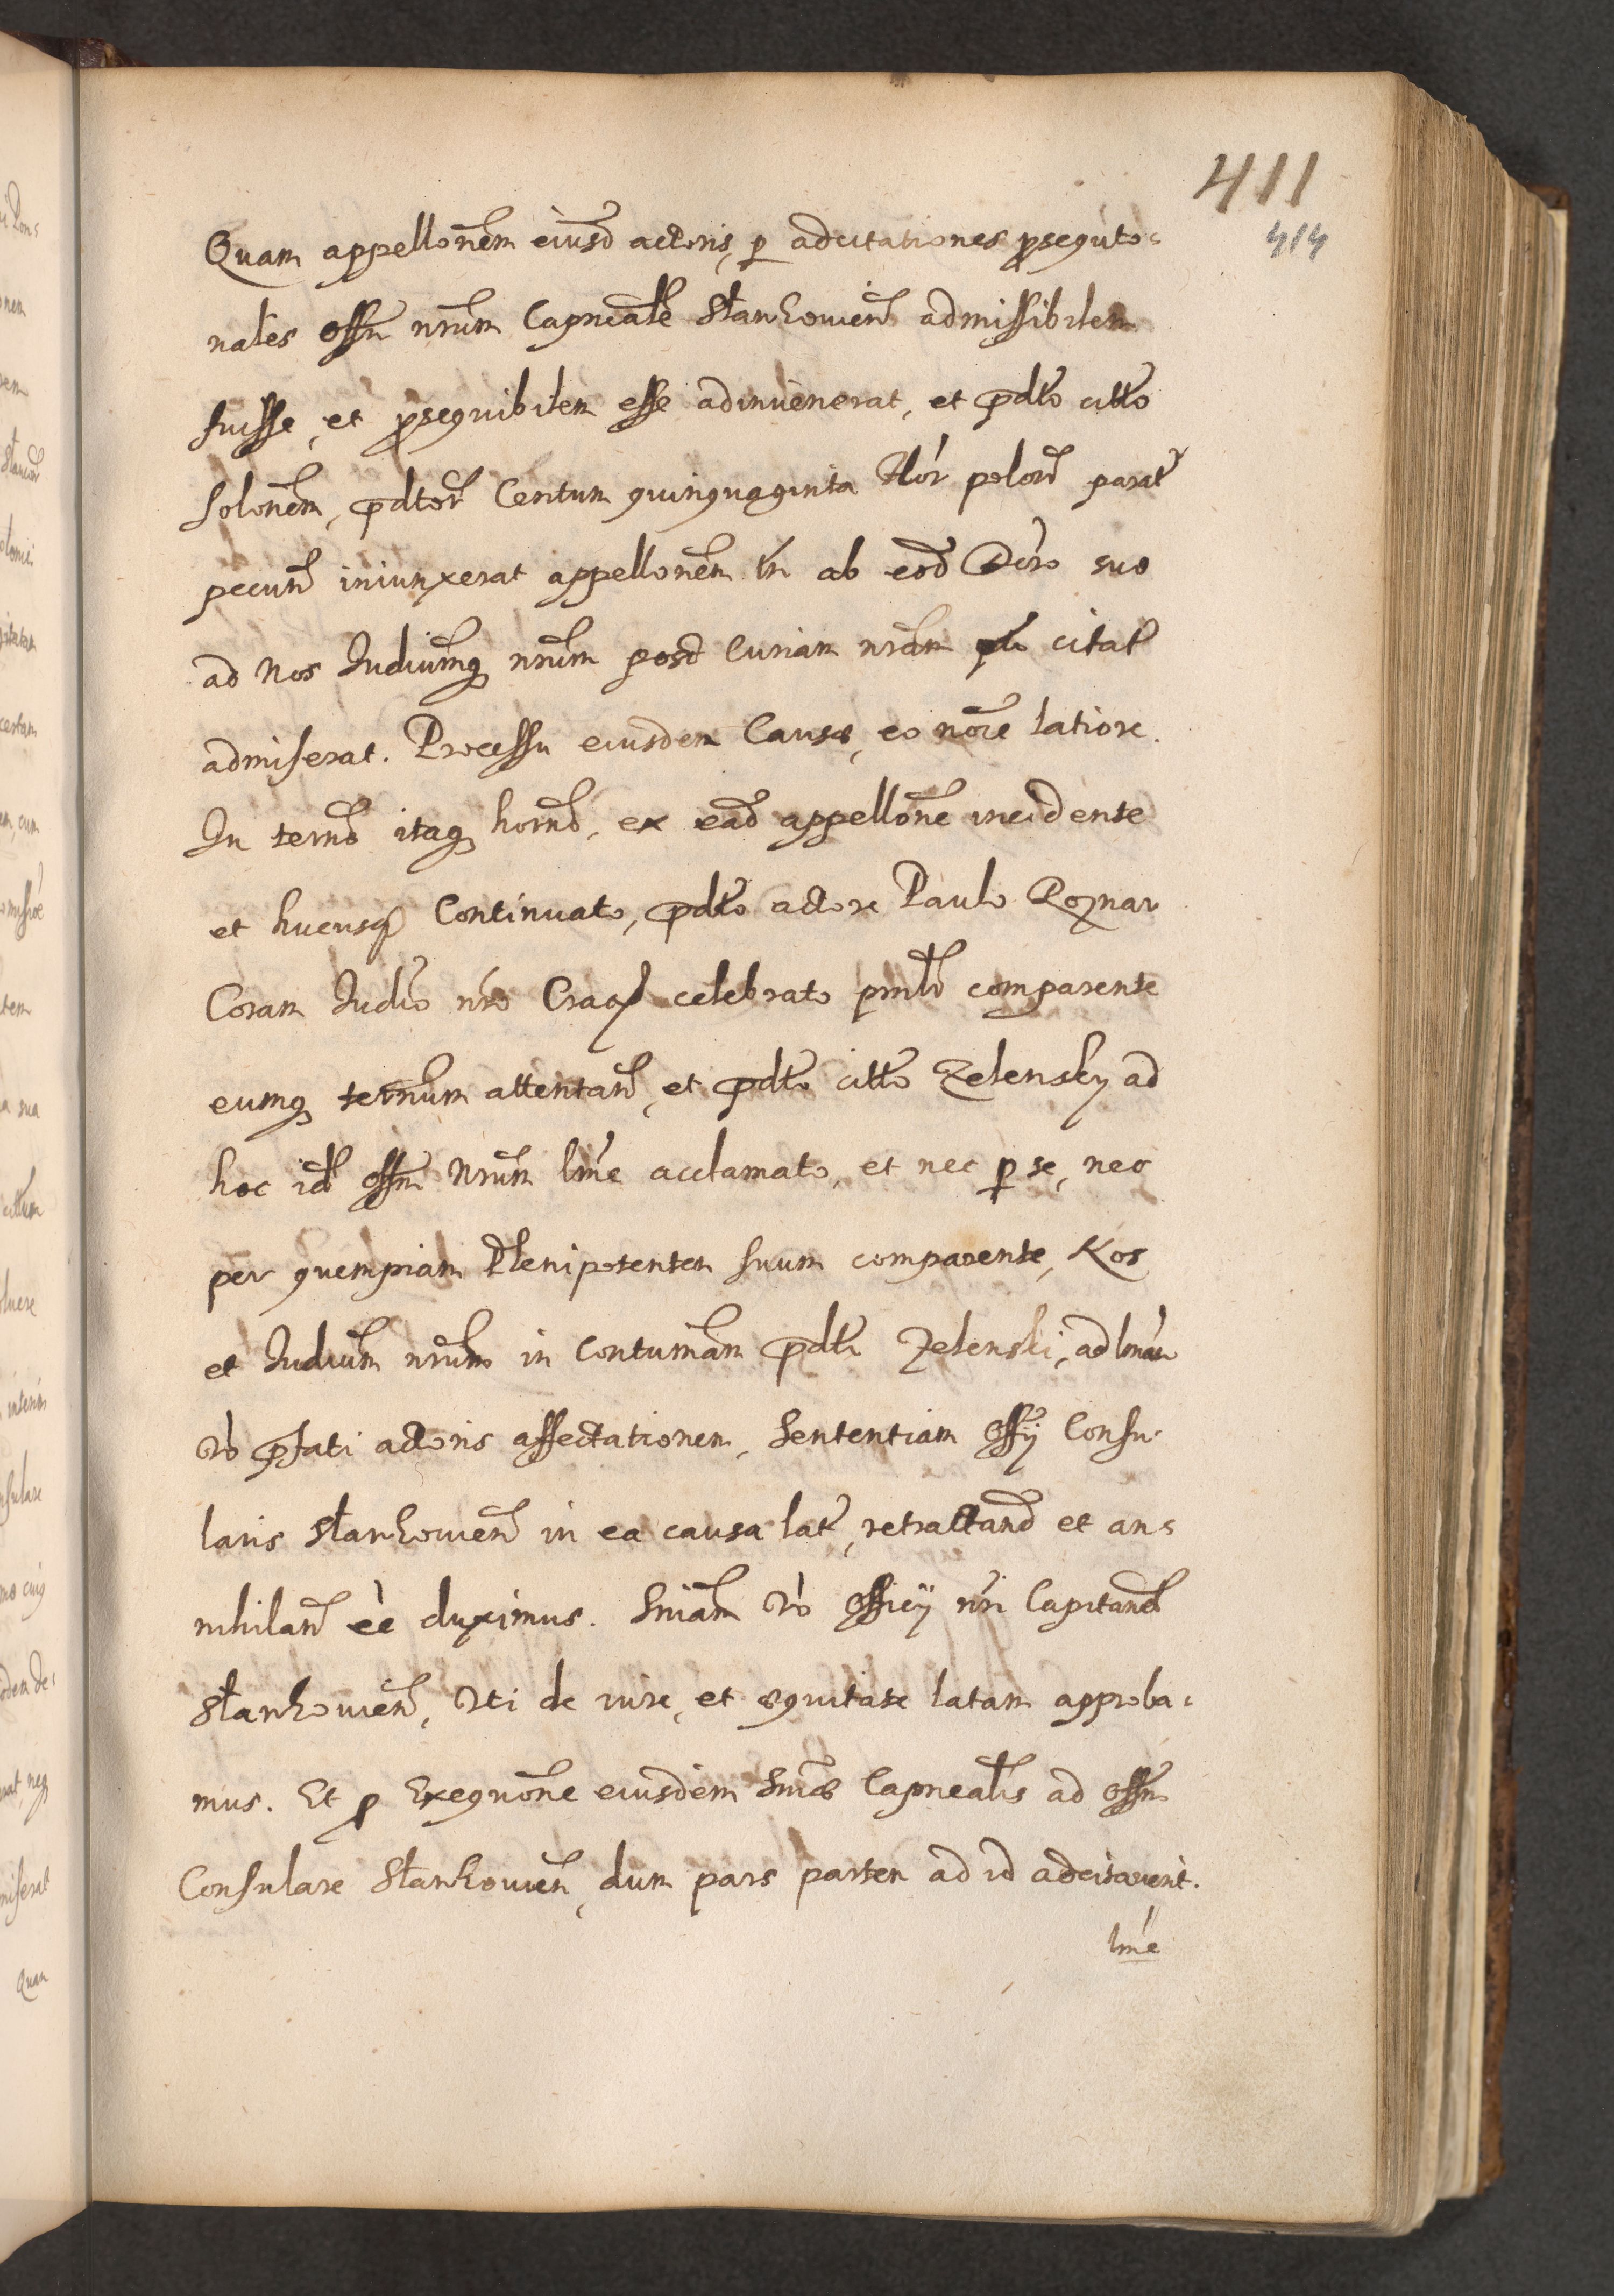 411
414
Quam appellonem eiusd actoris, p adcitationes prosequto=
nales offm nrum Capneale Stanhouien admissibilem
fuisse, et prosequibilem esse adinuenerat, et pdto citto
solonem, pdtor Centum quinquaginta flor polon parat
pecun iniunxerat appellonem tn ab eod Dcro suo
ad Nos Iudiumq nrum post Curiam nram citat
admiserat. Processu eiusdem Causæ, eo nore latiore.
In termo itaq hoino, ex ead appellone incidente
et hucusq Continuato, pdto actore Paulo Roznar
Coram Iudio nro Crao celebrato prnlr comparente
eumq ternum attentan, et pdto citto Zelensky ad
hoc id offm Nrum lme acclamato, et nec p se, nec
per quempiam Plenipotentem suum comparente, Nos
et Iudium nrum in Contumam pdti Zelenski, ad lmam
vo pfati actoris affectationem, Sententiam offij Consu=
laris Stanhouien in ea causa lat, retractand et an=
nihilan eè duximus. Sniam vo officij nri Capitanel
Stanhouien, Vti de iure, et æquitate latam approba=
mus. Et p Exequone eiusdem Sniæ Capnealis ad offm
Consulare Stanhouien, dum pars partem ad id adcitauerit.
lme